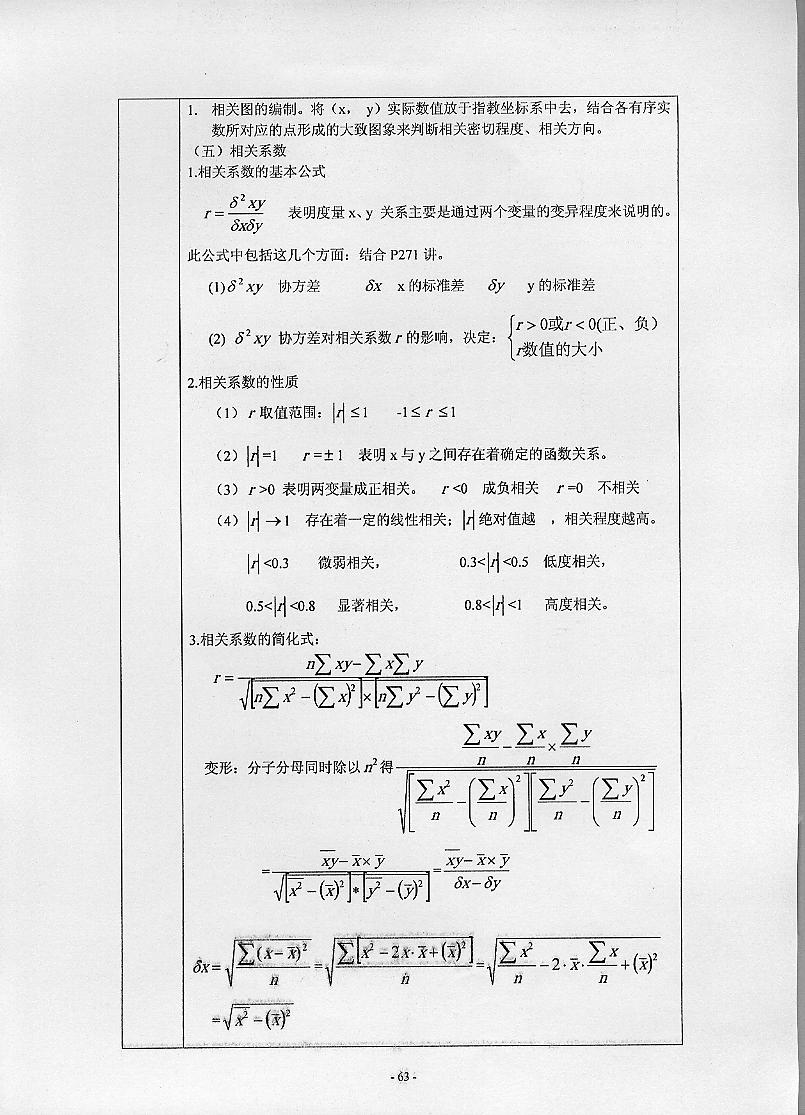 1. 相关图的编制。将（x， y）实际数值放于指教坐标系中去，结合各有序实
数所对应的点形成的大致图象来判断相关密切程度、相关方向。
（五）相关系数
1.相关系数的基本公式
r = δ²xy / δxδy 表明度量 x、y 关系主要是通过两个变量的变异程度来说明的。
此公式中包括这几个方面：结合 P271 讲。
(1) δ²xy 协方差 δx x 的标准差 δy y 的标准差
(2) δ²xy 协方差对相关系数 r 的影响，决定：{ r > 0或r < 0(正、负）
r数值的大小
2.相关系数的性质
（1） r 取值范围：|r| ≤ 1 -1 ≤ r ≤ 1
（2）|r| =1 r = ± 1 表明 x 与 y 之间存在着确定的函数关系。
（3） r >0 表明两变量成正相关。 r <0 成负相关 r =0 不相关
（4）|r| → 1 存在着一定的线性相关；|r| 绝对值越 ，相关程度越高。
|r| <0.3 微弱相关， 0.3< |r| <0.5 低度相关，
0.5< |r| <0.8 显著相关， 0.8< |r| <1 高度相关。
3.相关系数的简化式：
r = (n∑xy - ∑x∑y) / √([n∑x² - (∑x)²] × [n∑y² - (∑y)²])
变形：分子分母同时除以 n² 得 (∑xy/n - ∑x/n × ∑y/n) / √([∑x²/n - (∑x/n)²][∑y²/n - (∑y/n)²])
= (x̅y̅ - x̅ × y̅) / √([x̅²̅ - (x̅)²] * [y̅²̅ - (y̅)²]) = (x̅y̅ - x̅ × y̅) / δx - δy
δx = √(∑(x - x̅)² / n) = √(∑[x² - 2x· x̅ + (x̅)²] / n) = √(∑x²/n - 2 · x̅ · ∑x/n + (x̅)²)
= √(x̅²̅ - (x̅)²)
- 63 -